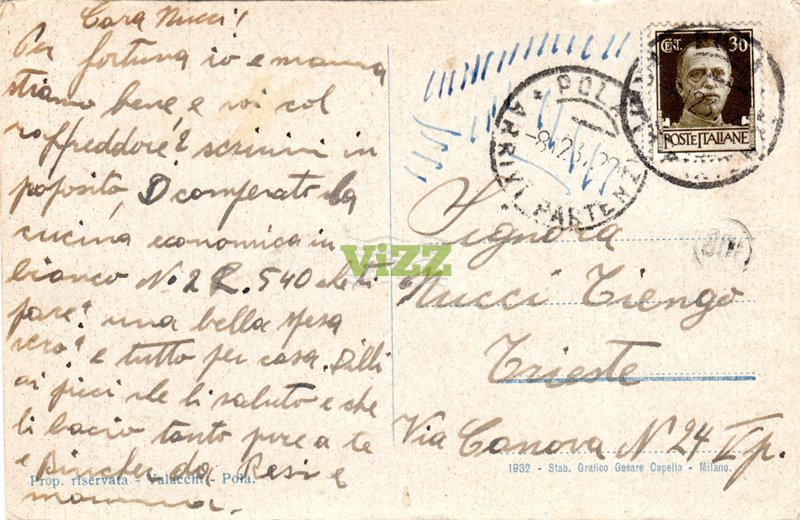 Cara Nucci!
Per fortuna io e mamma
stiamo bene, e voi col
raffreddore? scrivimi in
poposito, O comperato la
cucina economica in
bianco No 2 L. 540 che ti
pare? una bella spesa
vero? e tutto per casa. Dilli
ai picci che li saluto e che
li bacio tanto pure a te
e da Resi e
mamma.
Prop. riservata - Valacchi - Pola.
CENT. 30
POSTE ITALIANE
POLA
ARRIVI PARTENZE
Signora
Nucci Tiengo
Trieste
Via Canova N 24 I p.
1932 - Stab. Grafico Cesare Capello - Milano.
VIZZ